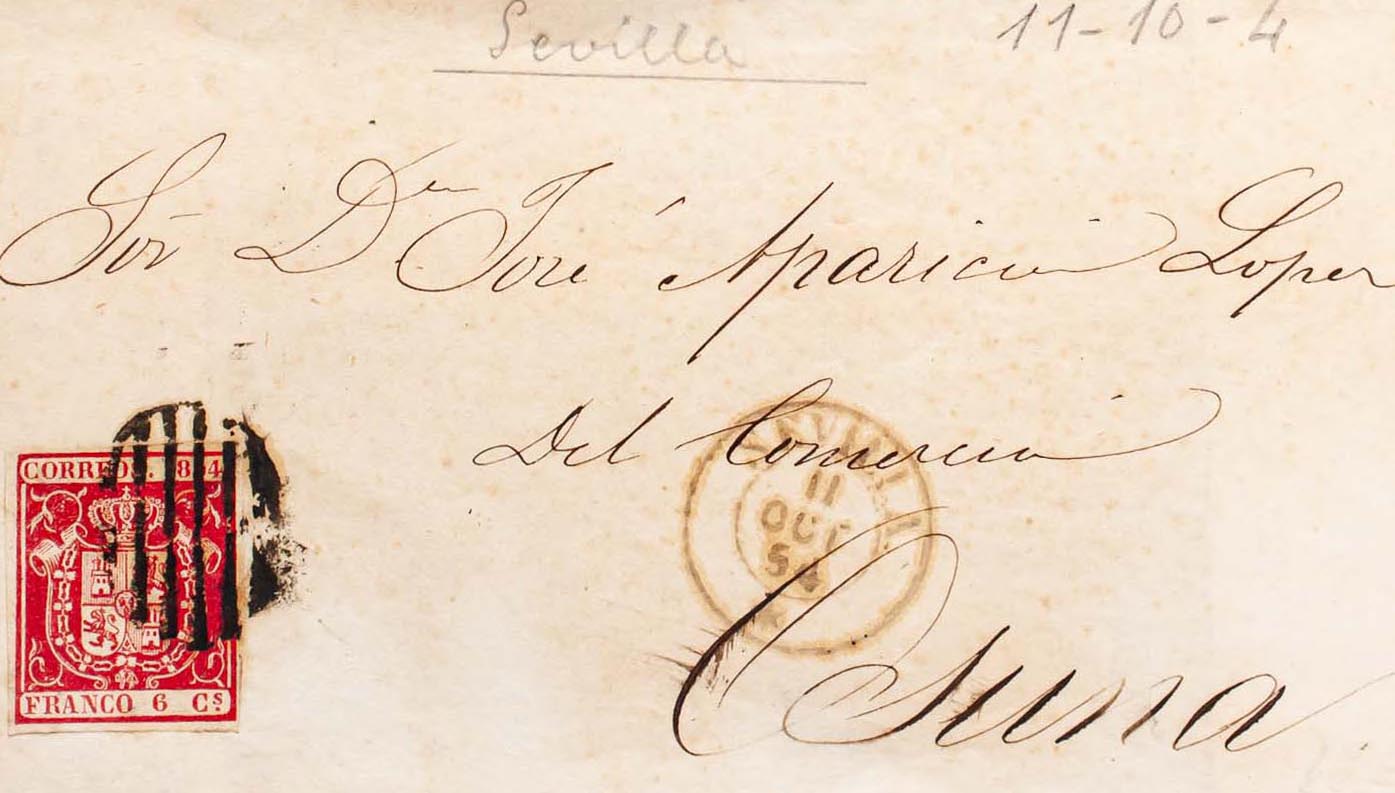 Sevilla
11-10-4
Sor Dn José Aparicio Lopez
Del Comercio
SEVILLA
11
OCT
54
Osuna
CORREOS. 1854
FRANCO 6 Cs